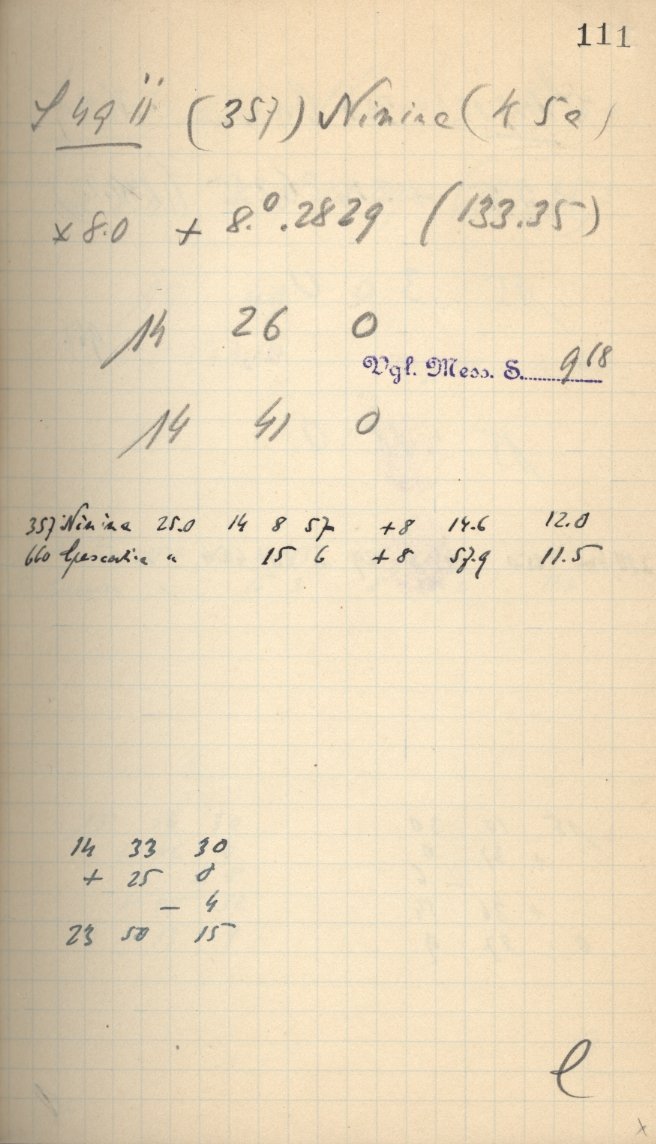 111
(357) Ninina (K 5a)
× 8.0 + 8.⁰.2829 (133.35)
14 26 0
Vgl. Mess. S. 918
14 41 0
357 Ninina 25.0 14 8 57 +8 14.6 12.0
660 Crescentia " 15 6 +8 57.9 11.5
14 33 30
+ 25 0
– 4
23 50 15